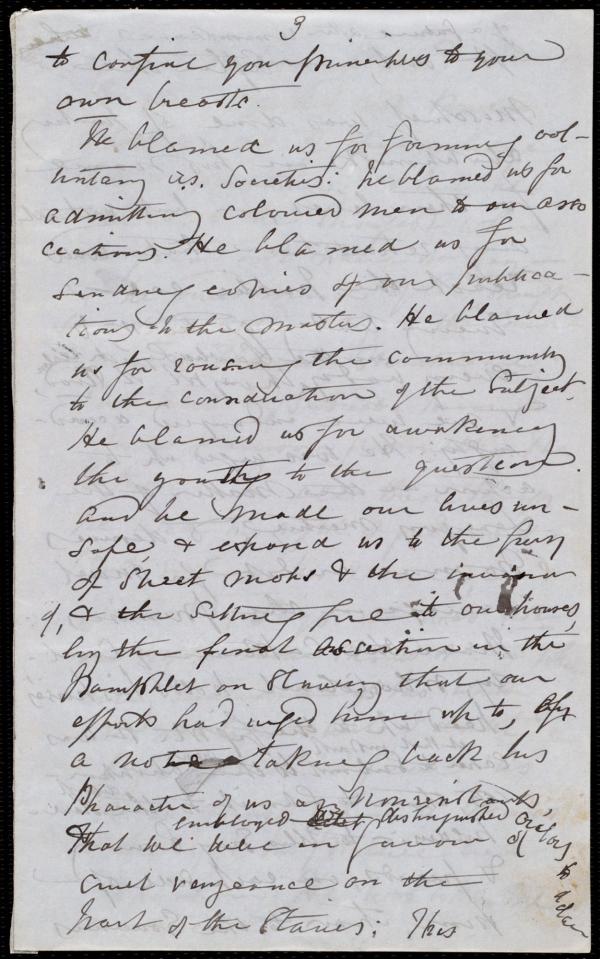 3
to confine your principles to your
own breasts.
He blamed us for forming vol-
untary as. Societies: he blamed us for
admitting coloured men to our asso
ciations. He blamed us for
sending copies of our publica-
tions to the masters. He blamed
us for rousing the community
to the consideration of the subject.
He blamed us for awakening
the youth to the question.
And he made our lives un-
safe & exposed us to the fury
of Street mobs & the invasion
of, & the setting fire to our houses,
by the final assertion in the
Pamphlet on Slavery that our
efforts had urged him up to, by
a note taking back his
Character of us as Nonresistants,
employed distinguished orators to
that we were in favour of
cruel vengeance on the
part of the Slaves: This